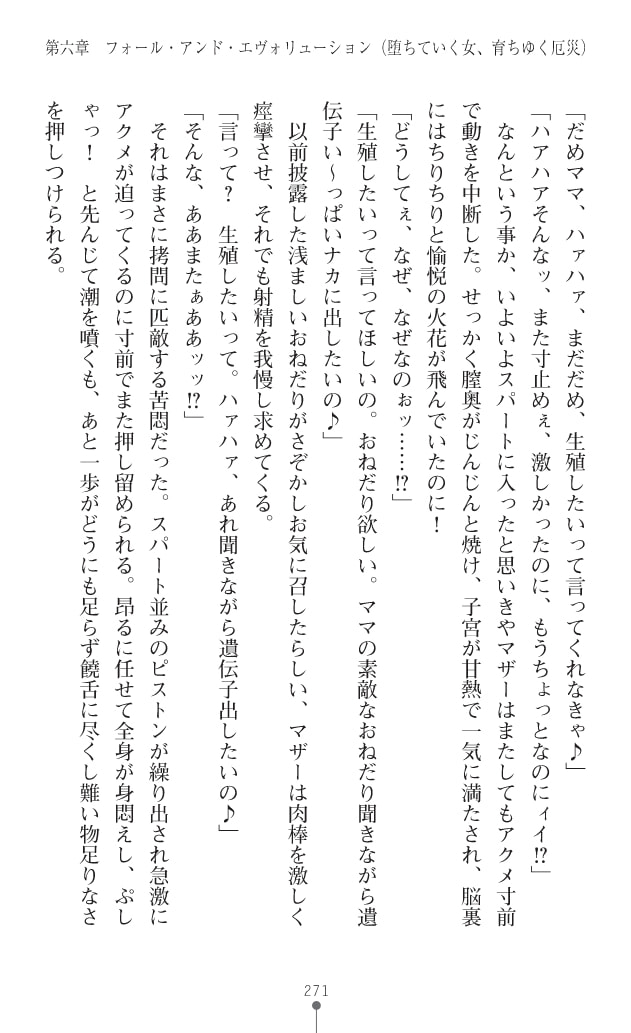 第六章　フォール・アンド・エヴォリューション（堕ちていく女、育ちゆく厄災）
「だめママ、ハァハァ、まだだめ、生殖したいって言ってくれなきゃ♪」
「ハアハアそんなッ、また寸止めぇ、激しかったのに、もうちょっとなのにィイ!?」
　なんという事か、いよいよスパートに入ったと思いきやマザーはまたしてもアクメ寸前
で動きを中断した。せっかく膣奥がじんじんと焼け、子宮が甘熱で一気に満たされ、脳裏
にはちりちりと愉悦の火花が飛んでいたのに！
「どうしてぇ、なぜ、なぜなのぉッ……!?」
「生殖したいって言ってほしいの。おねだり欲しい。ママの素敵なおねだり聞きながら遺
伝子い～っぱいナカに出したいの♪」
　以前披露した浅ましいおねだりがさぞかしお気に召したらしい、マザーは肉棒を激しく
痙攣させ、それでも射精を我慢し求めてくる。
「言って？　生殖したいって。ハァハァ、あれ聞きながら遺伝子出したいの♪」
「そんな、ああまたぁああッッ!?」
　それはまさに拷問に匹敵する苦悶だった。スパート並みのピストンが繰り出され急激に
アクメが迫ってくるのに寸前でまた押し留められる。昂るに任せて全身が身悶えし、ぷし
ゃっ！　と先んじて潮を噴くも、あと一歩がどうにも足らず饒舌に尽くし難い物足りなさ
を押しつけられる。
271